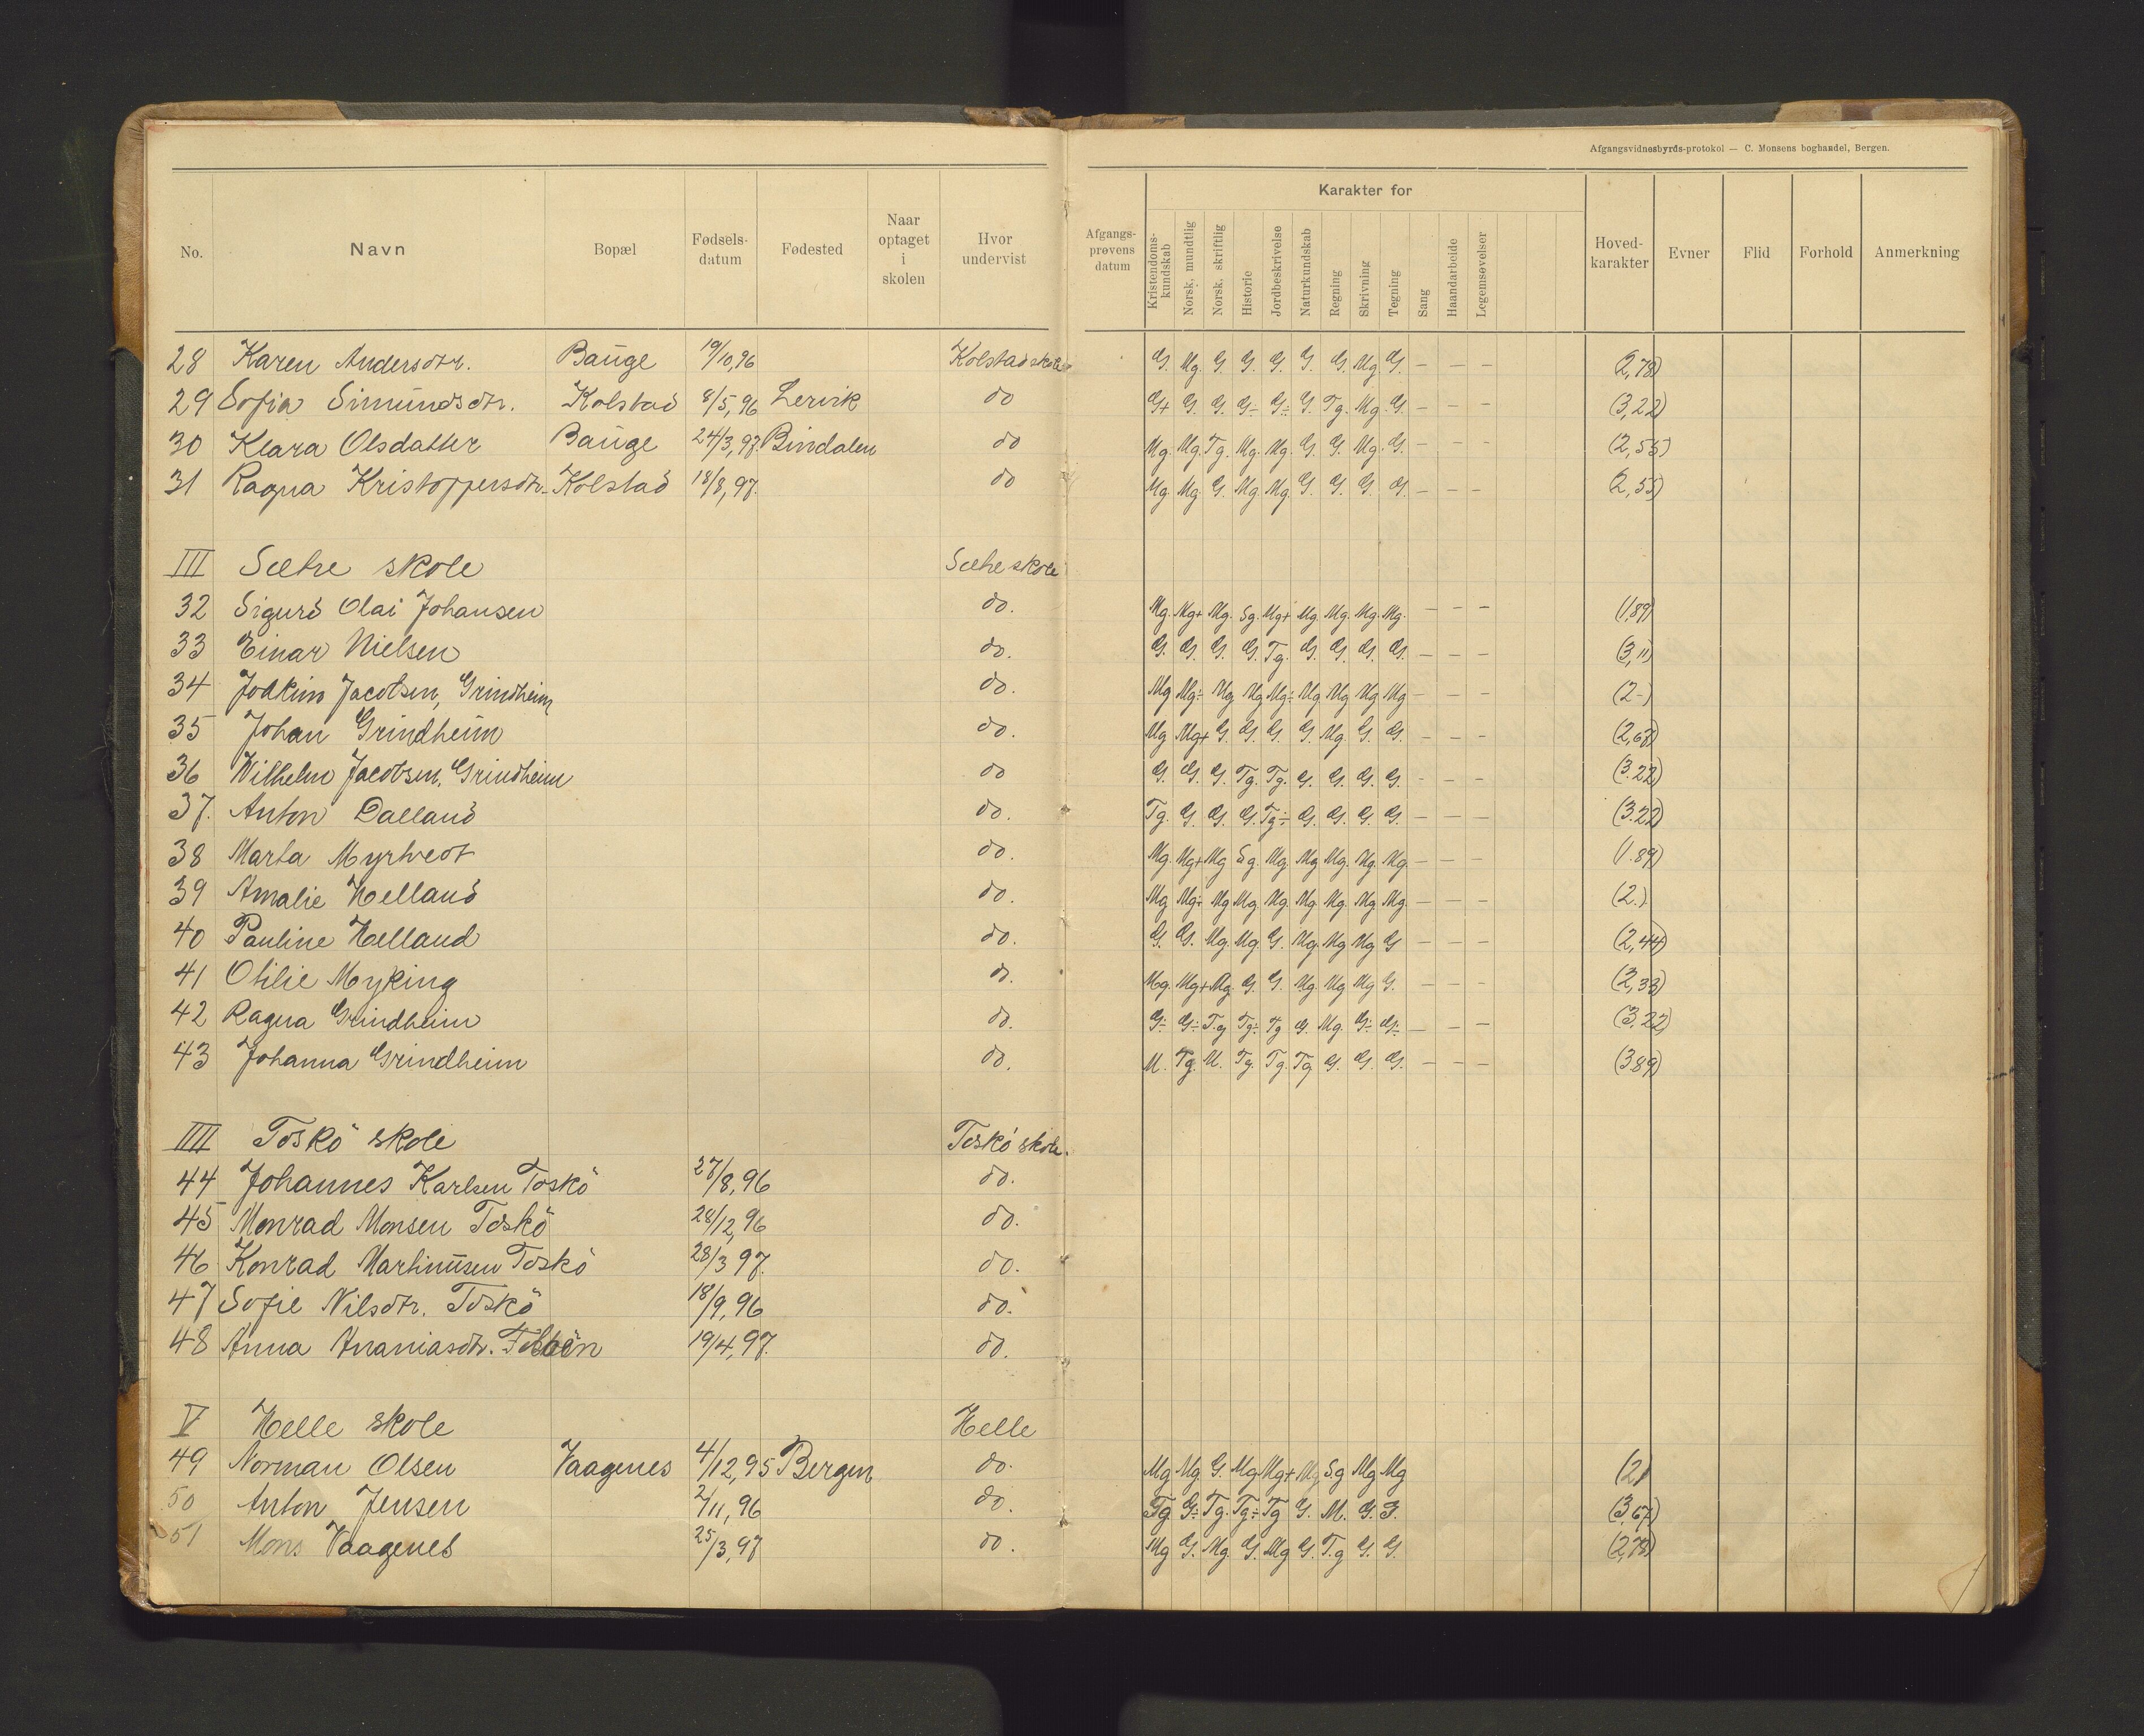 Afgangsvidnesbyrds-protokol — C. Monsens boghandel, Bergen.
No. Navn Bopæl Fødsels-datum Fødested Naar optaget i skolen Hvor undervist Afgangs-prøvens datum Karakter for Kristendoms-kundskab Norsk, mundtlig Norsk, skriftlig Historie Jordbeskrivelse Naturkundskab Regning Skrivning Tegning Sang Haandarbeide Legemsøvelser Hoved-karakter Evner Flid Forhold Anmerkning
28 Karen Andersdtr. Bauge 19/10,96 Kolstad skole G. Mg. G. G. G. G. G. Mg. G. — — — (2,78)
29 Sofia Simundsdtr. Kolstad 8/5,96 Lervik do G+ G. G. G- G÷ G. Tg. Mg. G. — — — (3,22)
30 Klara Olsdatter Bauge 24/3,97. Bindalen do Mg. Mg. Tg. Mg. Mg. G. G. Mg. G. — — — (2,55)
31 Ragna Kristoffersdtr. Kolstad 18/8,97. do Mg. Mg. G. Mg. Mg. G. G. G. G. — — — (2,55)
III Sætre skole Sætre skole
32 Sigurd Olai Johansen do. Mg. Mg+ Mg. Sg. Mg+ Mg. Mg. Mg. Mg. — — — (1,89)
33 Einar Nielsen do. G. G. G. G. Tg. G. G. G. G. — — — (3,11)
34 Joakim Jacobsen, Grindheim do. Mg Mg÷ Mg Mg Mg÷ Mg Mg Mg Mg — — — (2-)
35 Johan Grindheim do. Mg Mg+ G. G. G. G. Mg. G. G. — — — (2,67)
36 Wilhelm Jacobsen, Grindheim do G. G. G. Tg. Tg. G. G. G. G. — — — (3.22)
37. Anton Dalland do. Tg. G. G. G. Tg÷ G. G. G. G. — — — (3.22)
38 Marta Myrtvedt do. Mg. Mg+ Mg Sg. Mg. Mg Mg. Mg. Mg. — — — (1.89)
39 Amalie Helland do. Mg Mg÷ Mg Mg Mg. Mg. Mg. Mg Mg — — — (2.)
40 Pauline Helland do. G. G. Mg. Mg. G. Mg. Mg Mg G — — — (2,44)
41 Otilie Myking do. Mg. Mg+ Mg. G. G. Mg. Mg Mg G. — — — (2,33)
42 Ragna Grindheim do. G÷ G÷ Tg Tg÷ Tg G. Mg. G÷ G÷ — — — (3,22)
43 Johanna Grindheim do. M. Tg. M. Tg. Tg. Tg G. G. G. — — — (389)
IIII Toskö skole Toskö skole.
44 Johannes Karlsen Toskö 27/8,96 do.
45 Monrad Monsen Toskö 28/12,96 do.
46 Konrad Martinusen Toskö 28/3 97. do.
47 Sofie Nilsdtr. Toskö 18/9,96 do.
48 Anna Ananiasdtr. 19/4,97. do.
V Helle skole Helle
49 Norman Olsen Vaagenes 4/12,95 Bergen do. Mg Mg. G. Mg Mg+ Mg Sg Mg Mg (2)
50 Anton Jensen 2/11,96 do. Tg G÷ Tg. Tg÷ Tg G. M. G. G. (3,67)
51 Mons Vaagenes 25/3,97 do. Mg G. Mg. G. Mg G. Tg G. G. (2,78)